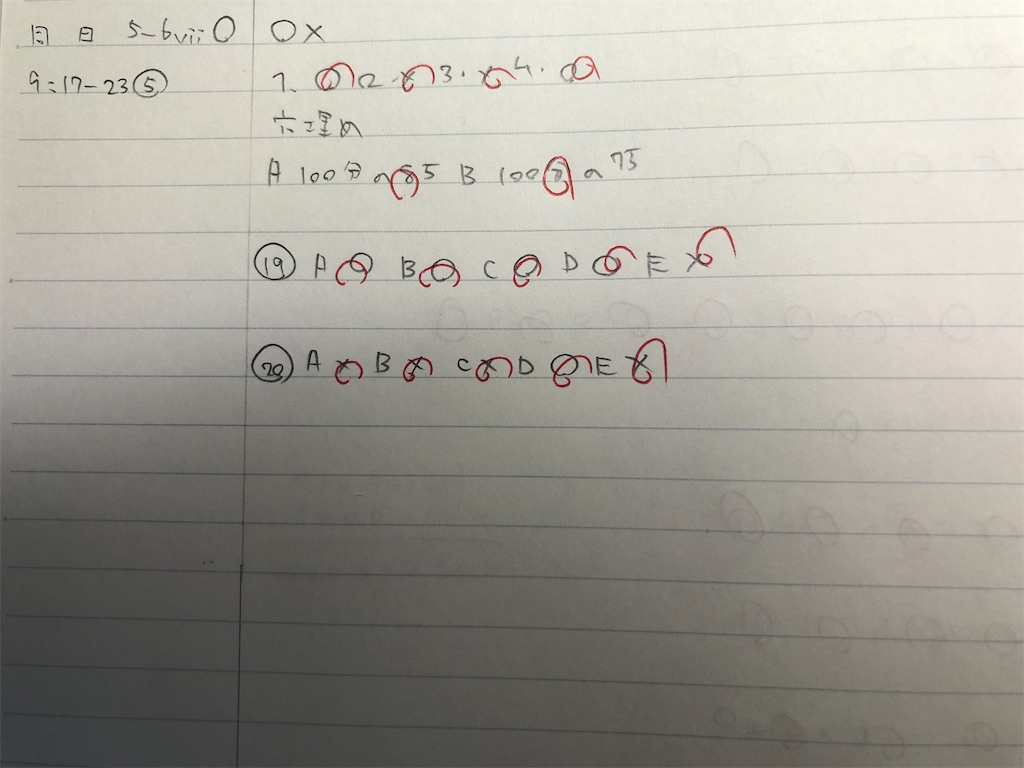 同日 5-6vii○ ○×
9:17-23⑤ 1. ○ 2 × 3. × 4. ○
穴埋め
A 100分の85 B 100分の75
⑲ A ○ B ○ C ○ D ○ E ×
⑳ A × B × C × D ○ E ×